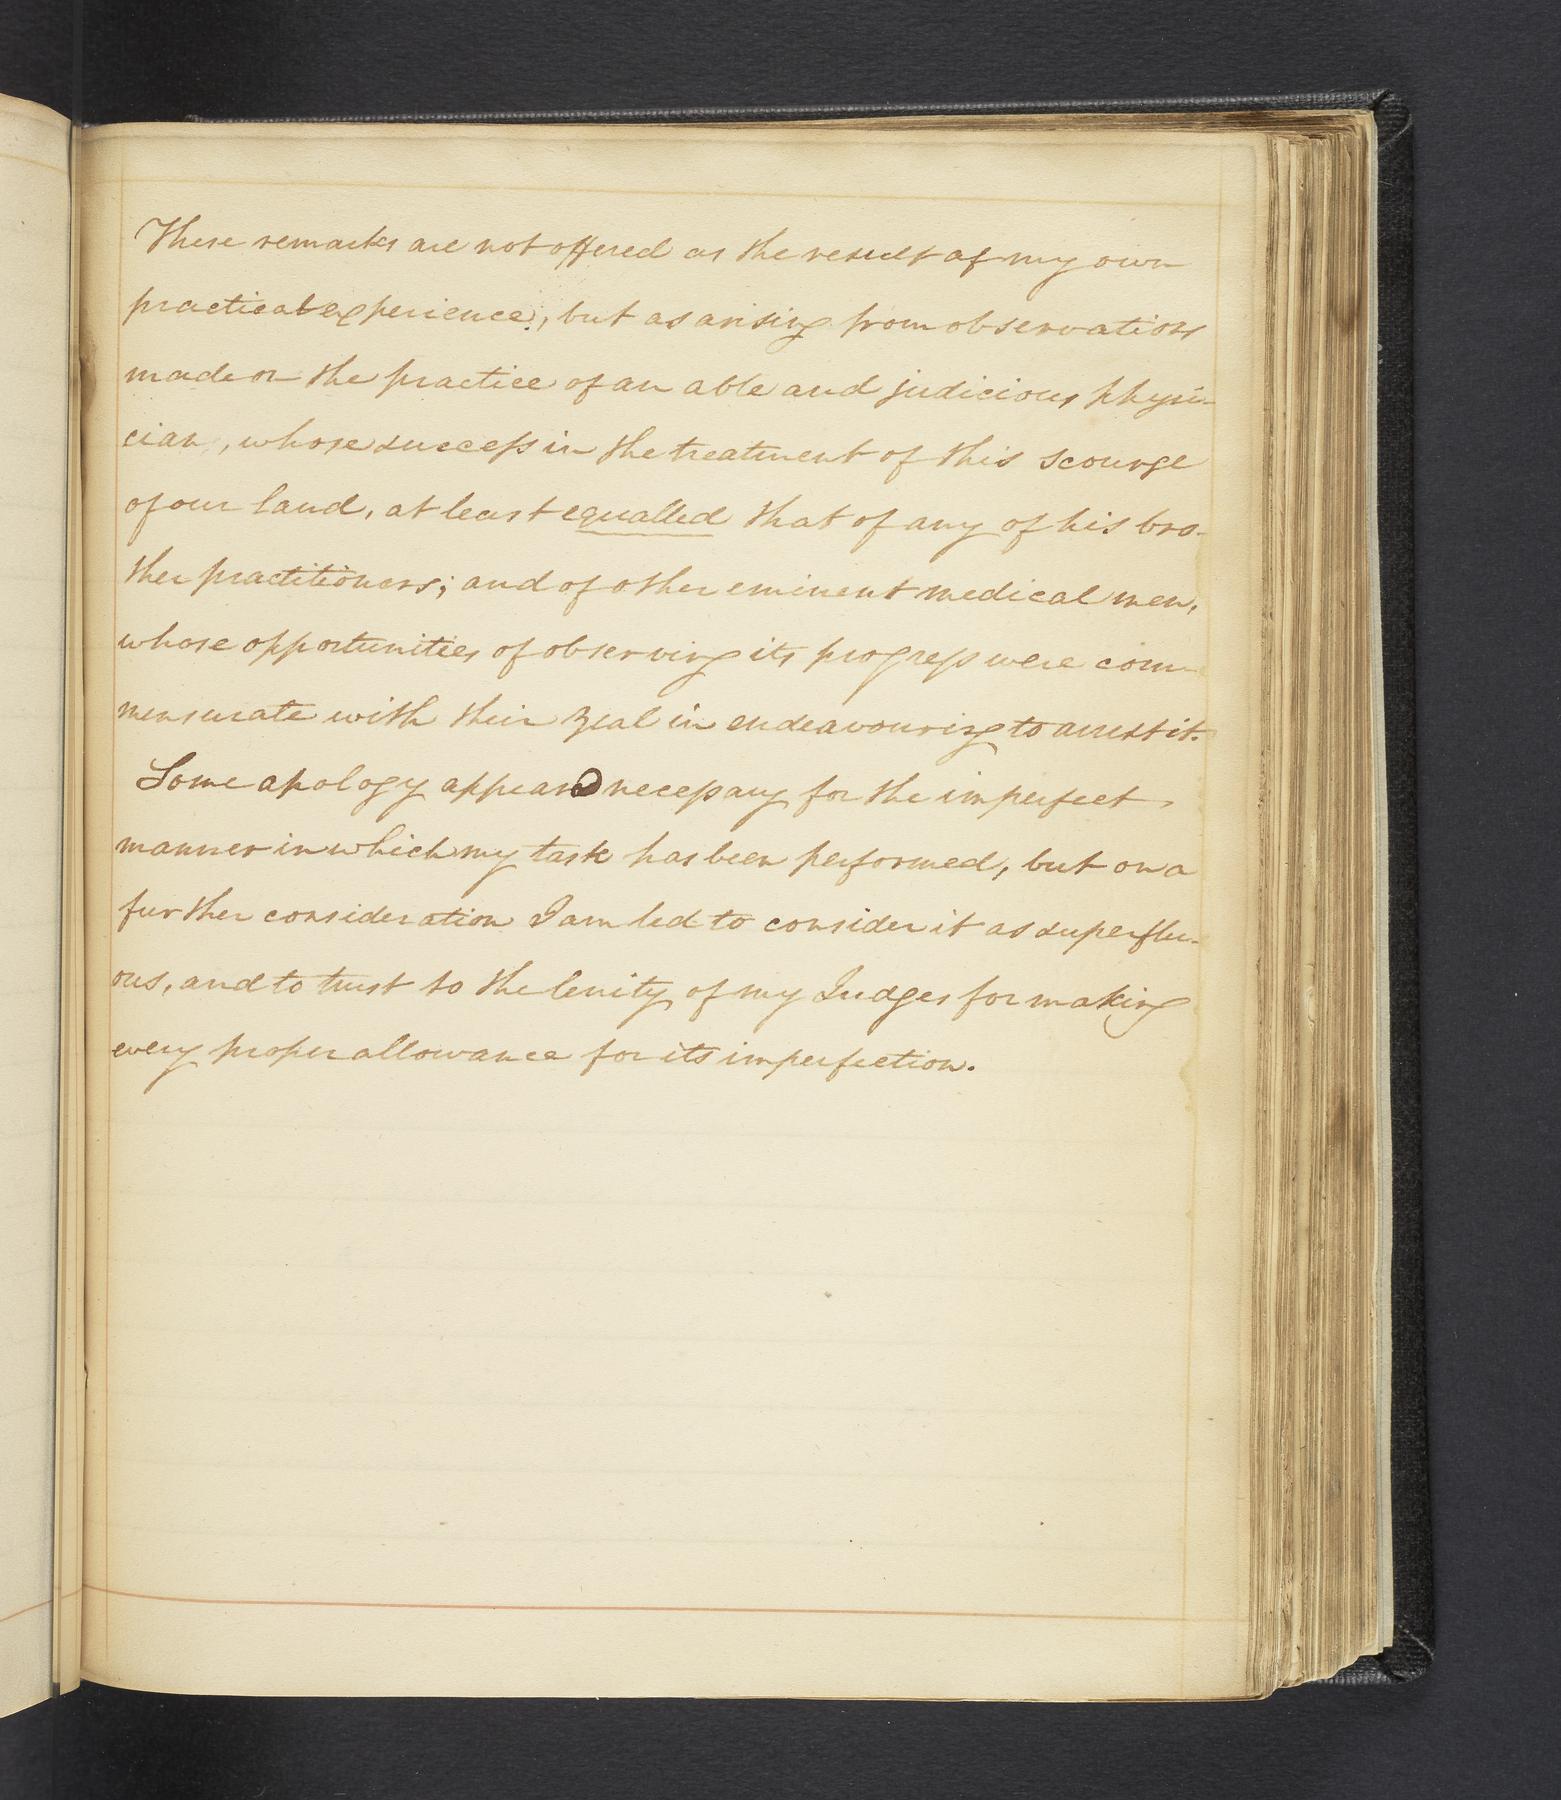 These remarks are not offered as the result of my own
practical experience, but as arising from observations
made on the practice of an able and judicious physi-
cian, whose success in the treatment of this scourge
of our land, at least equalled that of any of his bro-
ther practitioners; and of other eminent medical men,
whose opportunities of observing its progress were com-
mensurate with their zeal in endeavouring to arrest it.
Some apology appears necessary for the imperfect
manner in which my task has been performed, but on a
further consideration I am led to consider it as superflu-
ous, and to trust to the lenity of my Judges for making
every proper allowance for its imperfection.